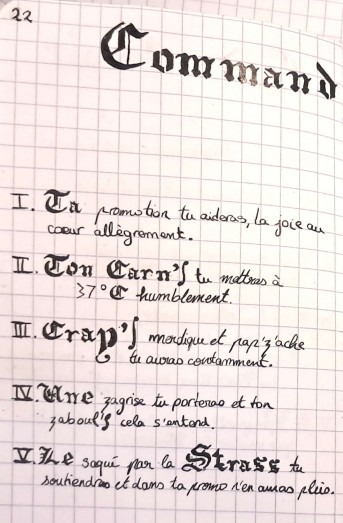 22
Command
I. Ta promotion tu aideras, la joie au
cœur allègrement.
II. Ton Carn's tu mettras à
37°C humblement.
III. Crap's mordique et pap'z'ache
tu auras constamment.
IV. Une zagrise tu porteras et ton
zaboul's cela s'entend.
V. Le saqui par la Strass tu
soutiendras et dans ta promo n'en auras plus.